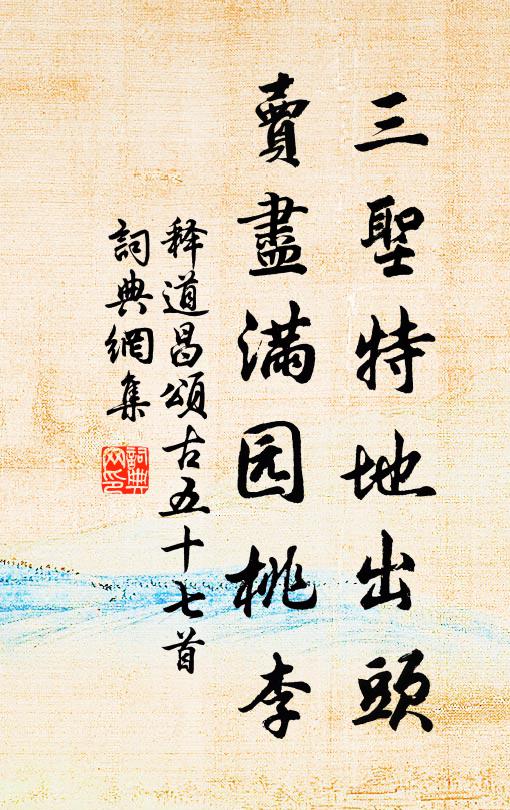 三聖特地出頭
賣盡满园桃李
释道昌頌古五十七首
詞典網集
詞典网印